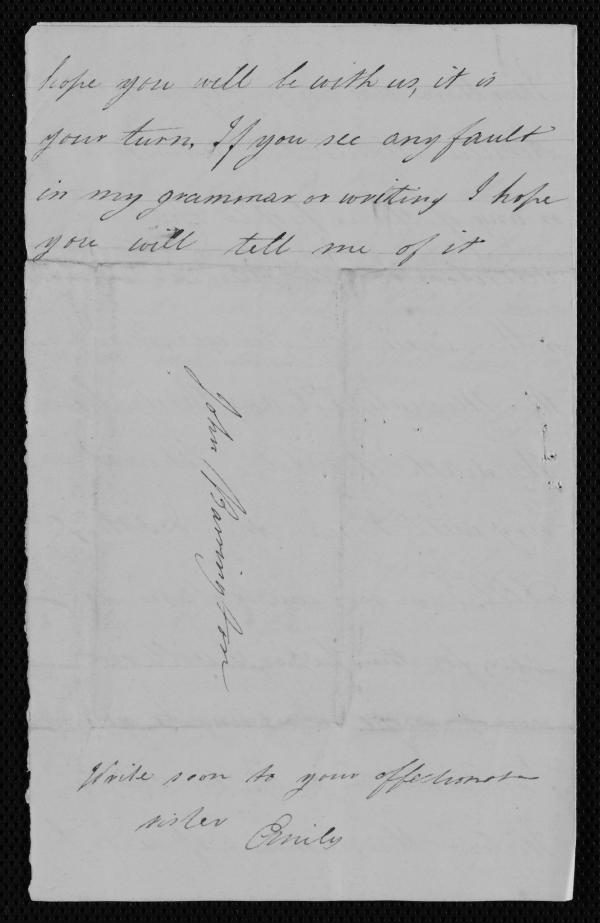 hope you will be with us, it is
your turn. If you see any fault
in my grammar or writing I hope
you will tell me of it
John Barrington
Write soon to your affectionate
sister
Emily